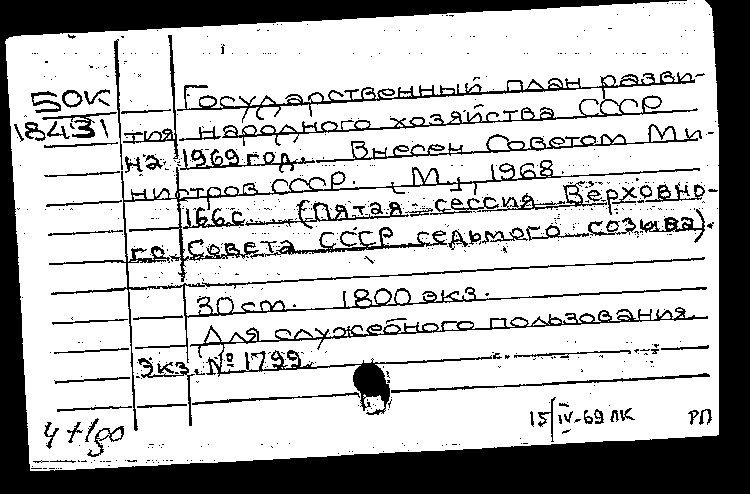 БОК
18431
Государственный план разви-
тия народного хозяйства СССР
на 1969 год. Внесен Советом Ми-
нистров СССР. [М.], 1968.
166с. (Пятая сессия Верховно-
го Совета СССР седьмого созыва).
30 cm. 1800 экз.
Для служебного пользования.
Экз. № 1799.
15/IV-69 ЛК РП